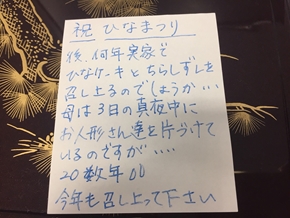 祝 ひなまつり
後、何年実家で
ひなケーキとちらしずしを
召し上るのでしょうか・・・
母は3日の真夜中に
お人形さん達を片づけて
いるのですが・・・・
20数年00
今年も召し上って下さい